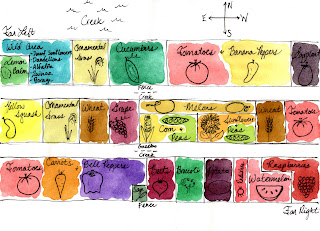 Far Left
Creek
N
E W
S
Wild Area
Sweet Sunflowers
Dandelions
Alfalfa
Quinoa
Borage
Lemon
Balm
Ornamental
Grass
Cucumbers
Tomatoes
Banana Peppers
Eggplant
Fence
Creek
Yellow
Squash
Ornamental
Grass
Wheat
Grape
Melons
Corn
Peas
Sunflowers
Peas
Wheat
Tomatoes
Creek
Tomatoes
Carrots
Bell Peppers
Beets
Broccoli
Watermelon
Raspberries
Fence
Far Right